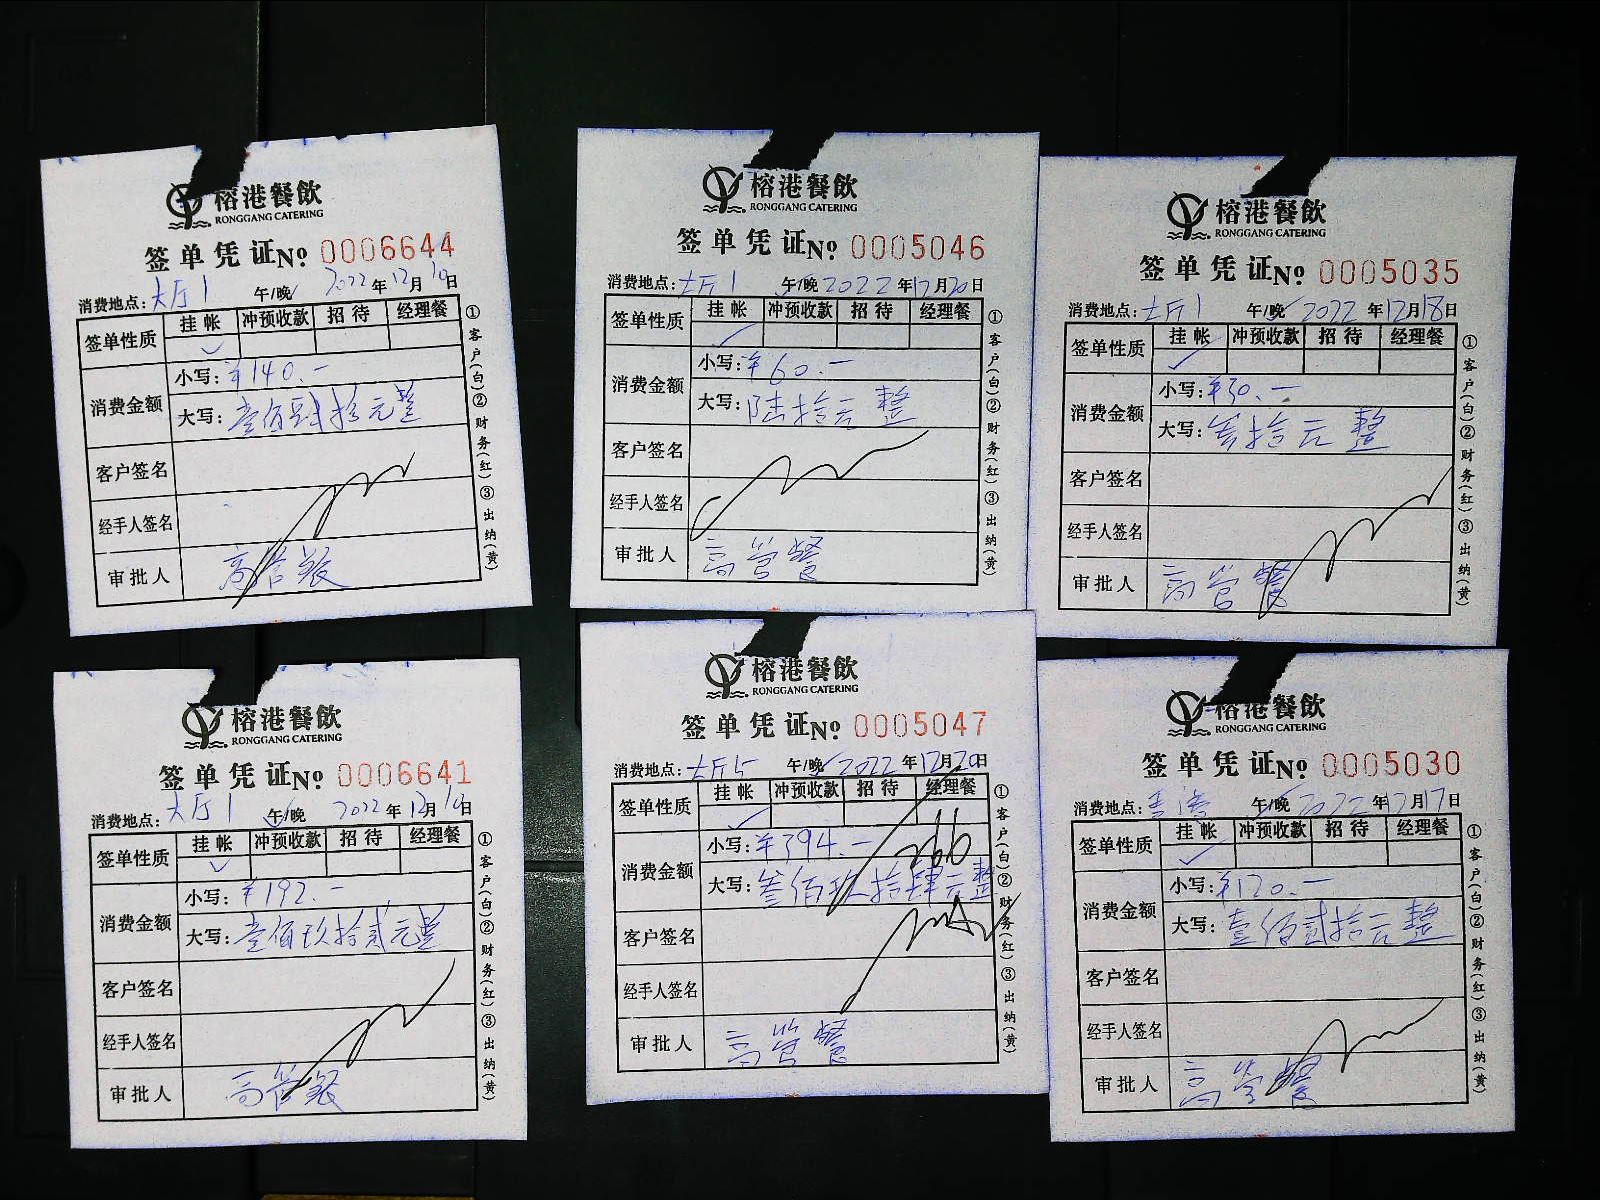 榕港餐飲
RONGGANG CATERING
签单凭证№ 0006644
消费地点：大厅1 午/晚 2022年12月10日
签单性质 挂帐 冲预收款 招待 经理餐
✓
消费金额 小写：¥140.-
大写：壹佰肆拾元整
客户签名
经手人签名
审批人 高管餐
①客户(白)②财务(红)③出纳(黄)
榕港餐飲
RONGGANG CATERING
签单凭证№ 0005046
消费地点：大厅1 午/晚 2022年12月20日
签单性质 挂帐 冲预收款 招待 经理餐
✓
消费金额 小写：¥60.-
大写：陆拾元整
客户签名
经手人签名
审批人 高管餐
①客户(白)②财务(红)③出纳(黄)
榕港餐飲
RONGGANG CATERING
签单凭证№ 0005035
消费地点：大厅1 午/晚 2022年12月18日
签单性质 挂帐 冲预收款 招待 经理餐
✓
消费金额 小写：¥30.-
大写：叁拾元整
客户签名
经手人签名
审批人 高管餐
①客户(白)②财务(红)③出纳(黄)
榕港餐飲
RONGGANG CATERING
签单凭证№ 0006641
消费地点：大厅1 午/晚 2022年12月10日
签单性质 挂帐 冲预收款 招待 经理餐
✓
消费金额 小写：¥192.-
大写：壹佰玖拾贰元整
客户签名
经手人签名
审批人 高管餐
①客户(白)②财务(红)③出纳(黄)
榕港餐飲
RONGGANG CATERING
签单凭证№ 0005047
消费地点：大厅5 午/晚 2022年12月20日
签单性质 挂帐 冲预收款 招待 经理餐
✓
消费金额 小写：¥394.-
大写：叁佰玖拾肆元整
266
客户签名
经手人签名
审批人 高管餐
①客户(白)②财务(红)③出纳(黄)
榕港餐飲
RONGGANG CATERING
签单凭证№ 0005030
消费地点： 午/晚 2022年12月17日
签单性质 挂帐 冲预收款 招待 经理餐
✓
消费金额 小写：¥120.-
大写：壹佰贰拾元整
客户签名
经手人签名
审批人 高管餐
①客户(白)②财务(红)③出纳(黄)